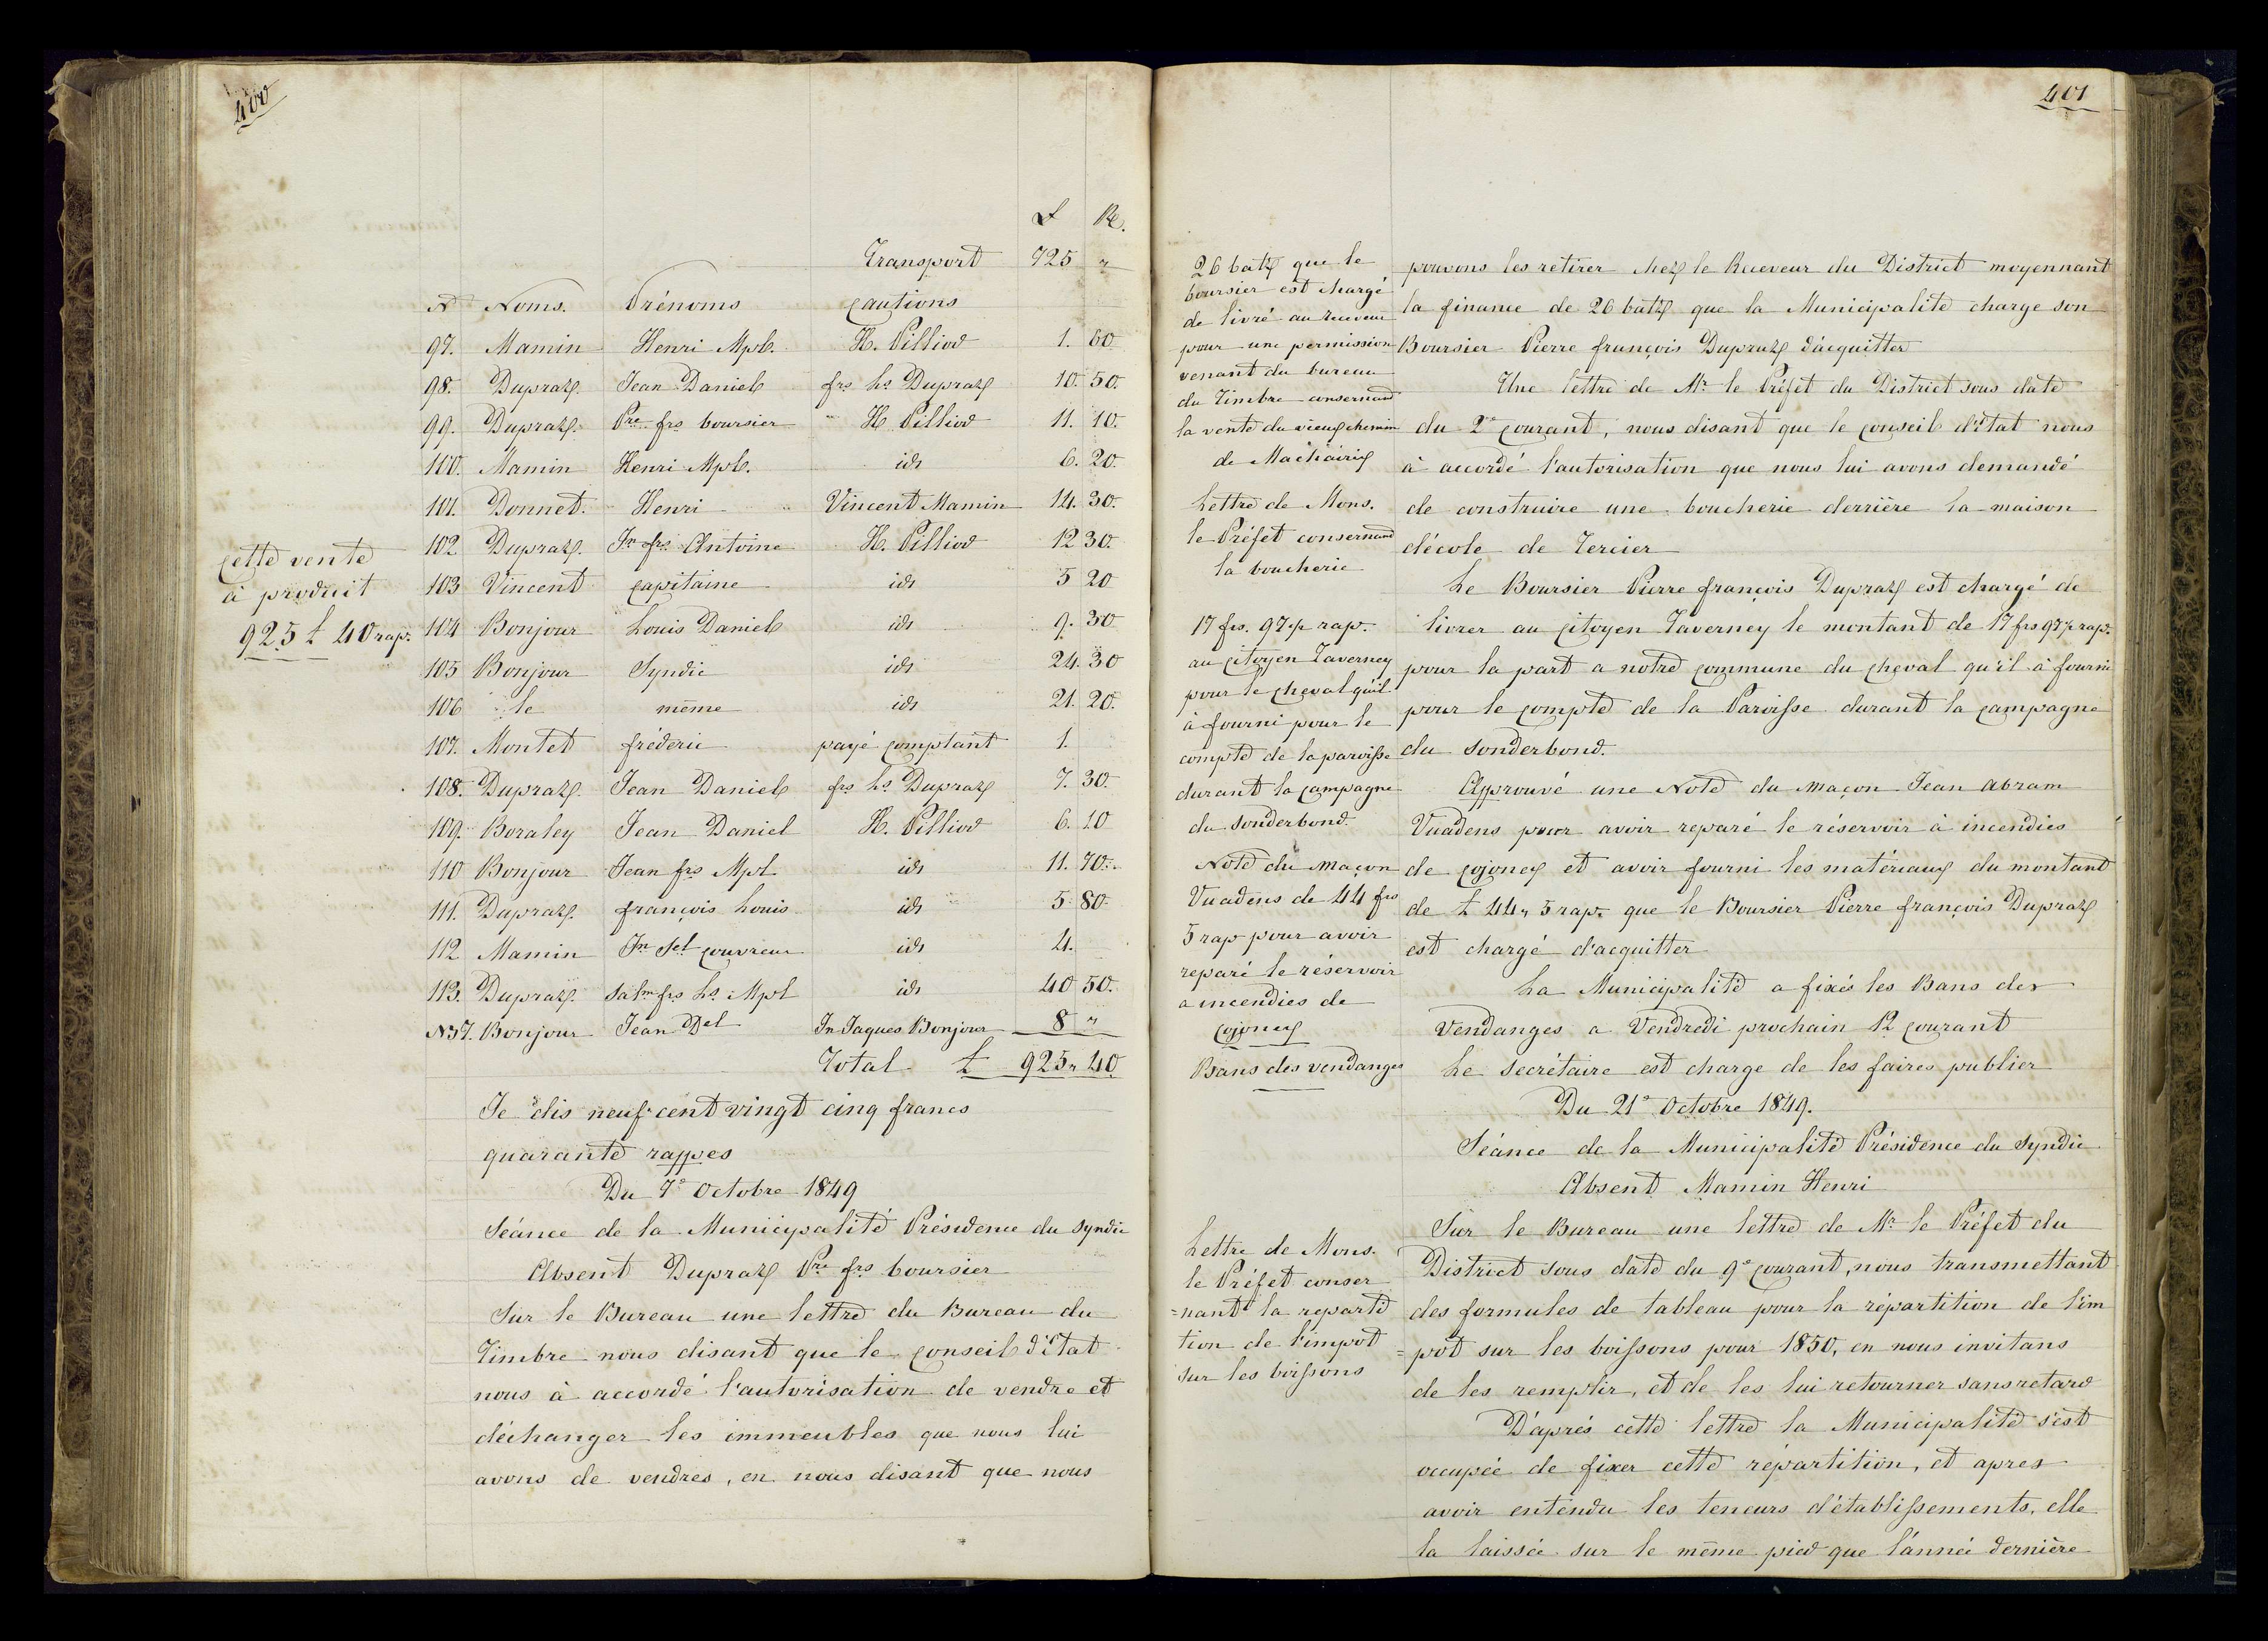 400
£ Re.
Transport 725 "
N° Noms. Prénoms Cautions
97. Mamin Henri Mpl. H. Pilliod 1. 60
98. Dupraz. Jean Daniel frs Ls Dupraz 10. 50.
99. Dupraz. Pre frs boursier H. Pilliod 11. 10.
100. Mamin Henri Mpl. id 6. 20.
101. Donnet. Henri Vincent Mamin 14. 30.
102 Dupraz. Jn frs Antoine H. Pilliod 12 30.
103 Vincent Capitaine id 5 20
104 Bonjour Louis Daniel id 9. 30
105 Bonjour Syndic id 24. 30
106 le même id 21. 20.
107. Montet fréderic payé comptant 1.
108. Dupraz. Jean Daniel frs Ls Dupraz 7. 30.
109. Boraley Jean Daniel H. Pilliod 6. 10
110 Bonjour Jean frs Mpl id 11. 70.
111. Dupraz. françois Louis id 5 80
112 Mamin Jn Sel couvreur id 4.
113. Dupraz. Salm frs Ls Mpl id 40 50.
N37. Bonjour Jean Del Jn Jaques Bonjour 8 "
Total £ 925 " 40
Cette vente
à produit
925 £ 40 rap.
Je dis neuf cent vingt cinq francs
quarante rappes
Du 7e Octobre 1849
Séance de la Municipalité Présidence du Syndic
Absent Dupraz Pre frs boursier
Sur le Bureau une lettre du Bureau du
Timbre nous disant que le Conseil d'Etat
nous à accordé l'autorisation de vendre et
déchanger les immeubles que nous lui
avons de vendres, en nous disant que nous
401
26 batz que le
boursier est chargé
de livré au receveur
pour une permission
venant du bureau
du Timbre consernand
la vente du vieux chemin
de
Lettre de Mons.
le Préfet consernand
la boucherie
17 frs. 97½ rap.
au Citoyen Taverney
pour le cheval qu'il
à fourni pour le
compte de la paroisse
durant la campagne
du Sonderbond.
Note du Maçon
Vuadens de 44 frs
5 rap pour avoir
reparé le réservoir
a incendies de
Cojonex
Bans des vendanges
Lettre de Mons.
le Préfet conser
=nant la reparti
tion de l'impot
sur les boissons
pouvons les retirer chez le Receveur du District moyennant
la finance de 26 batz que la Municipalité charge son
Boursier Pierre françois Dupraz d'acquitter
Une lettre de Mr. le Préfet du District sous date
du 2e courant, nous disant que le Conseil d'Etat nous
à accordé l'autorisation que nous lui avons demandé
de construire une boucherie derrière la maison
d'école de Tercier
Le Boursier Pierre françois Dupraz est chargé de
livrer au Citoyen Taverney le montant de 17 frs 97½ rap.
pour la part a notre commune du cheval qu'il à fourni
pour le compte de la Paroisse durant la campagne
du Sonderbond.
Approuvé une Note du Maçon Jean Abram
Vuadens pour avoir reparé le réservoir à incendies
de Cojonex et avoir fourni les matériaux du montant
de £ 44 " 5 rap. que le Boursier Pierre françois Dupraz
est chargé d'acquitter
La Municipalité a fixés les Bans des
Vendanges a Vendredi prochain 12 courant
Le Secrétaire est charge de les faires publier
Du 21e Octobre 1849.
Séance de la Municipalité Présidence du Syndic
Absent Mamin Henri
Sur le Bureau une lettre de Mr. le Préfet du
District sous date du 9e courant, nous transmettant
des formules de tableau pour la répartition de l'im
=pôt sur les boissons pour 1850, en nous invitans
de les remplir, et de les lui retourner sans retard
D'après cette lettre la Municipalité s'est
occupée de fixer cette répartition, et apres
avoir entendu les teneurs d'établissements, elle
la laissée sur le même pied que l'année dernière